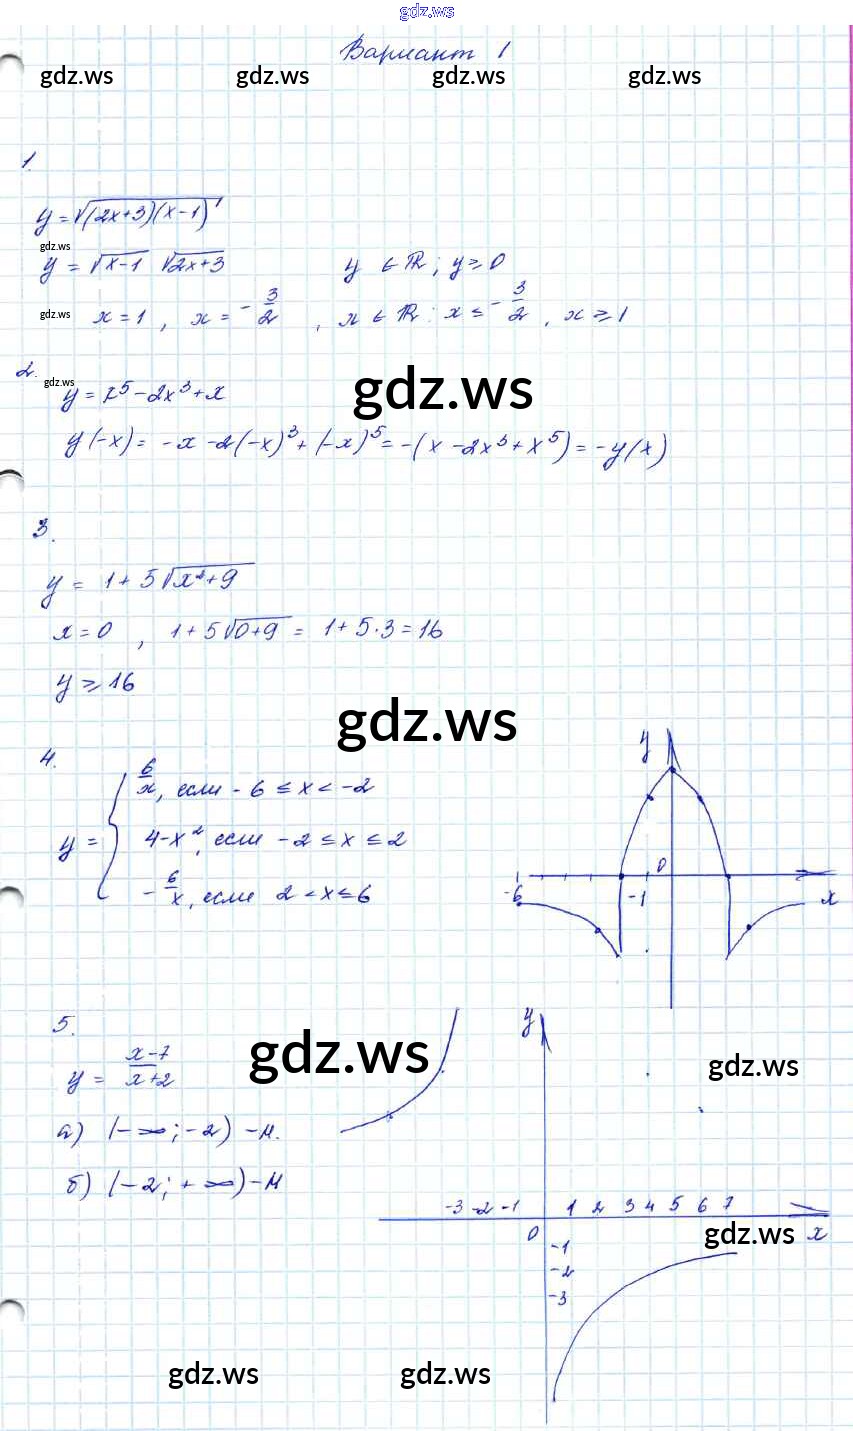 gdz.ws
Вариант 1
gdz.ws gdz.ws gdz.ws gdz.ws
1.
y = √((2x+3)(x-1))
gdz.ws
y = √(x-1) √(2x+3) y ∈ R; y ≥ 0
gdz.ws x = 1, x = -3/2, x ∈ R: x ≤ -3/2, x ≥ 1
2. gdz.ws gdz.ws
y = x⁵ - 2x³ + x
y(-x) = -x - 2(-x)³ + (-x)⁵ = -(x - 2x³ + x⁵) = -y(x)
3.
y = 1 + 5√(x²+9)
x = 0, 1 + 5√(0+9) = 1 + 5·3 = 16
y ≥ 16
gdz.ws
4.
6/x, если -6 ≤ x < -2
y = { 4-x², если -2 ≤ x ≤ 2
-6/x, если 2 < x ≤ 6
y
0
-6 -1 x
5.
gdz.ws gdz.ws
y = (x-7)/(x+2)
а) (-∞; -2) - м.
б) (-2; +∞) - м
y
-3 -2 -1 1 2 3 4 5 6 7
0 gdz.ws x
-1
-2
-3
gdz.ws gdz.ws